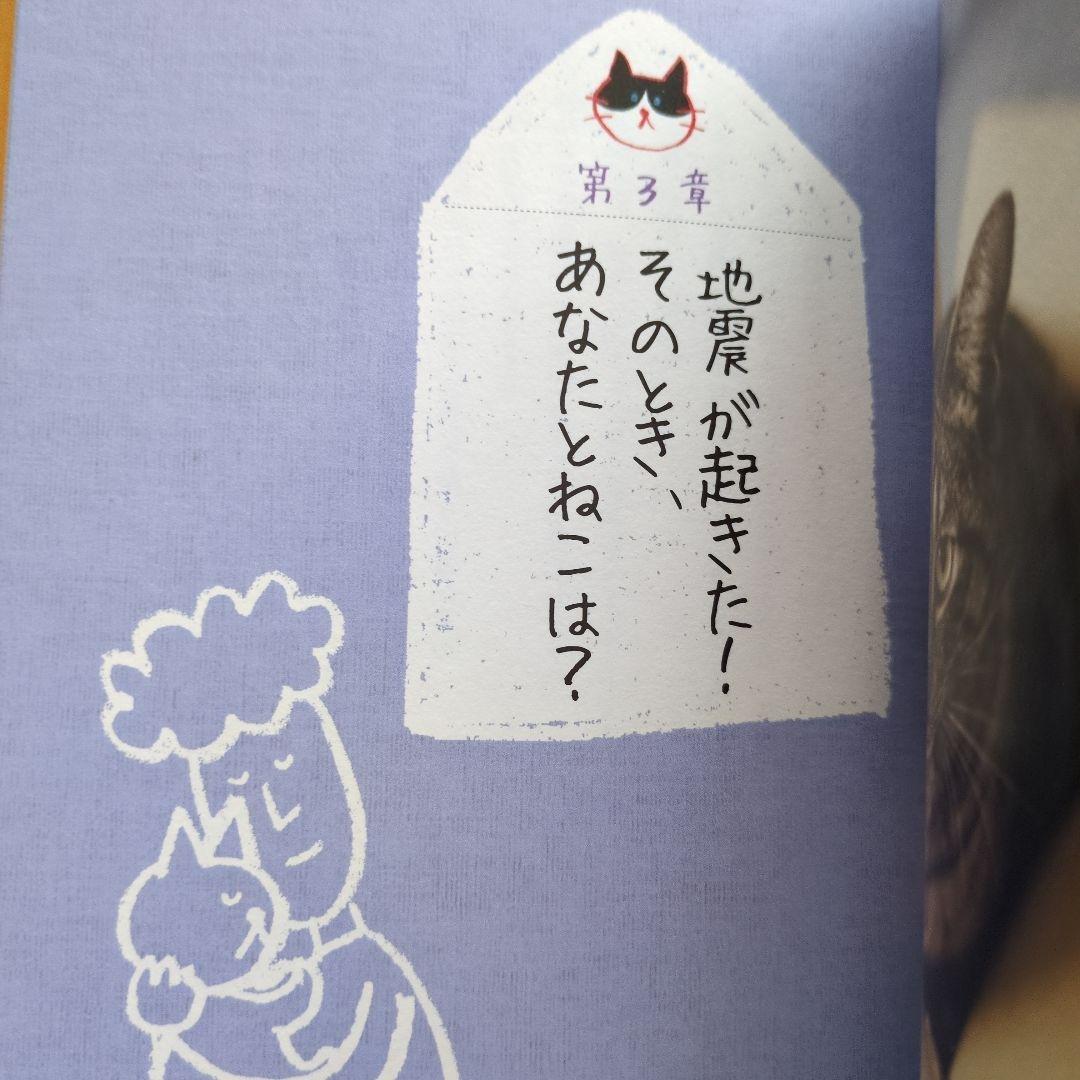 第3章
地震が起きた！
そのとき、
あなたとねこは？